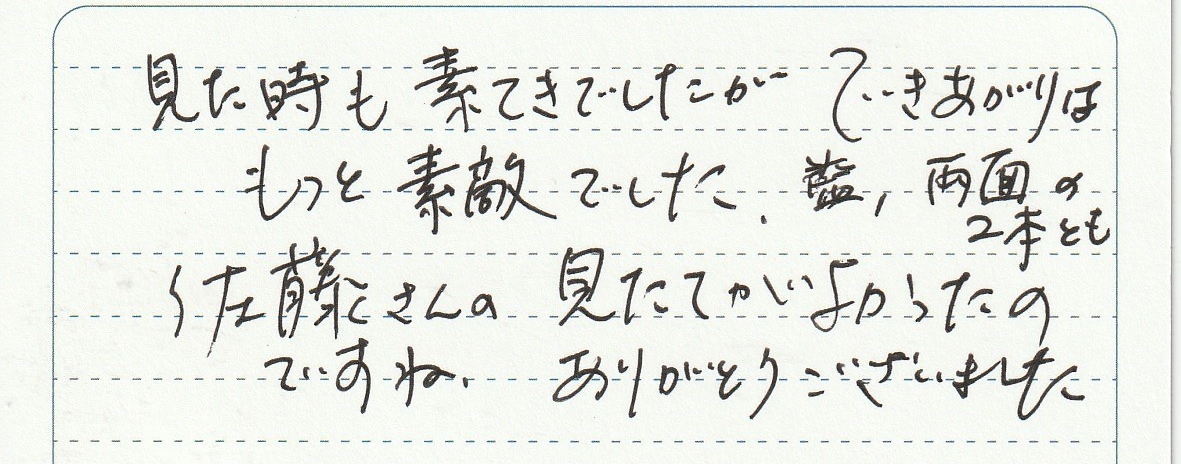 見た時も素てきでしたが できあがりは
もっと素敵でした、藍, 両面の
2本とも
佐藤さんの 見たてがよかったの
ですね、 ありがとうございました